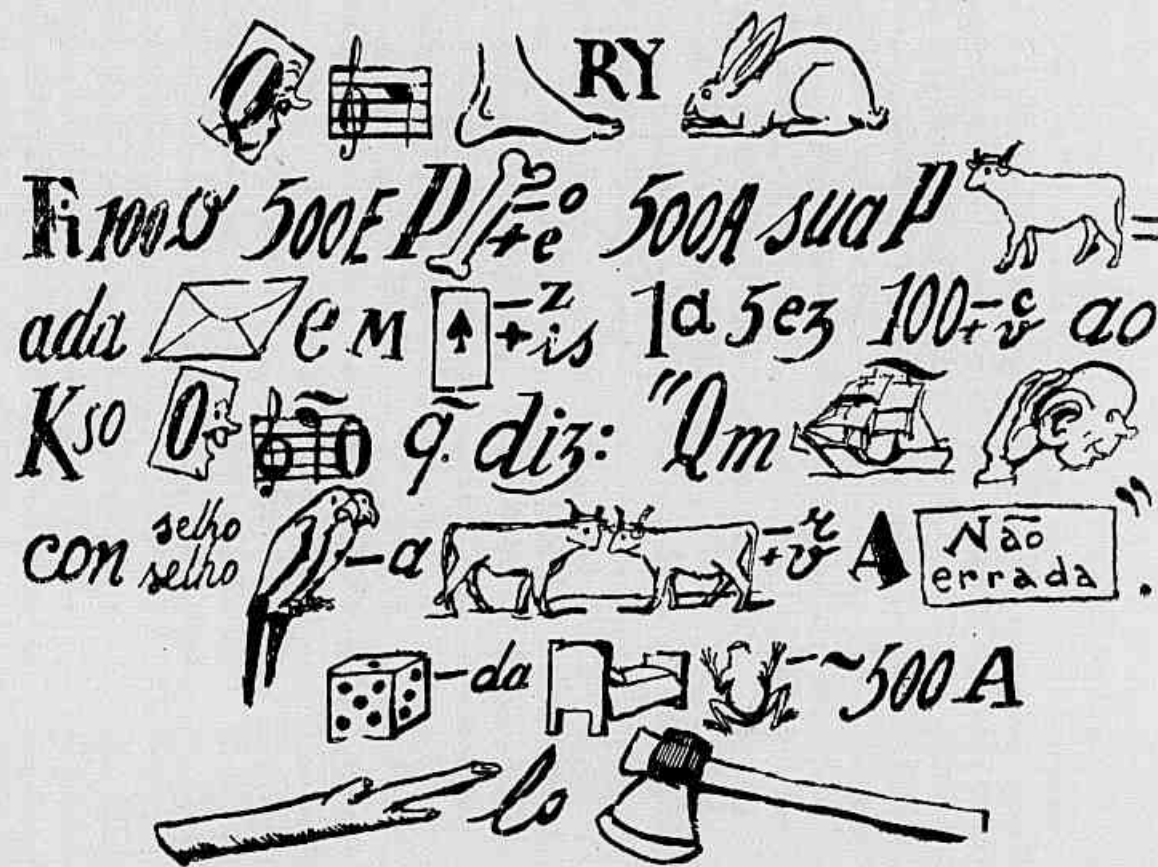 O RY
Fi 100 O 500E P -o +e 500A sua P =
ada e M -z +is 1a 5ez 100 -c +v ao
Kso O ~ O q̃ diz: "Qm ~
con selho selho -a -r +v A Não errada".
-da -~ 500 A
lo